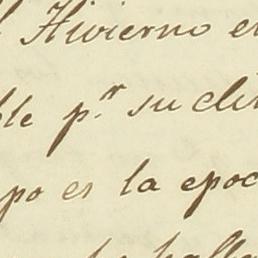 Hivierno e
ble p.r su cli
po es la epoc
halla